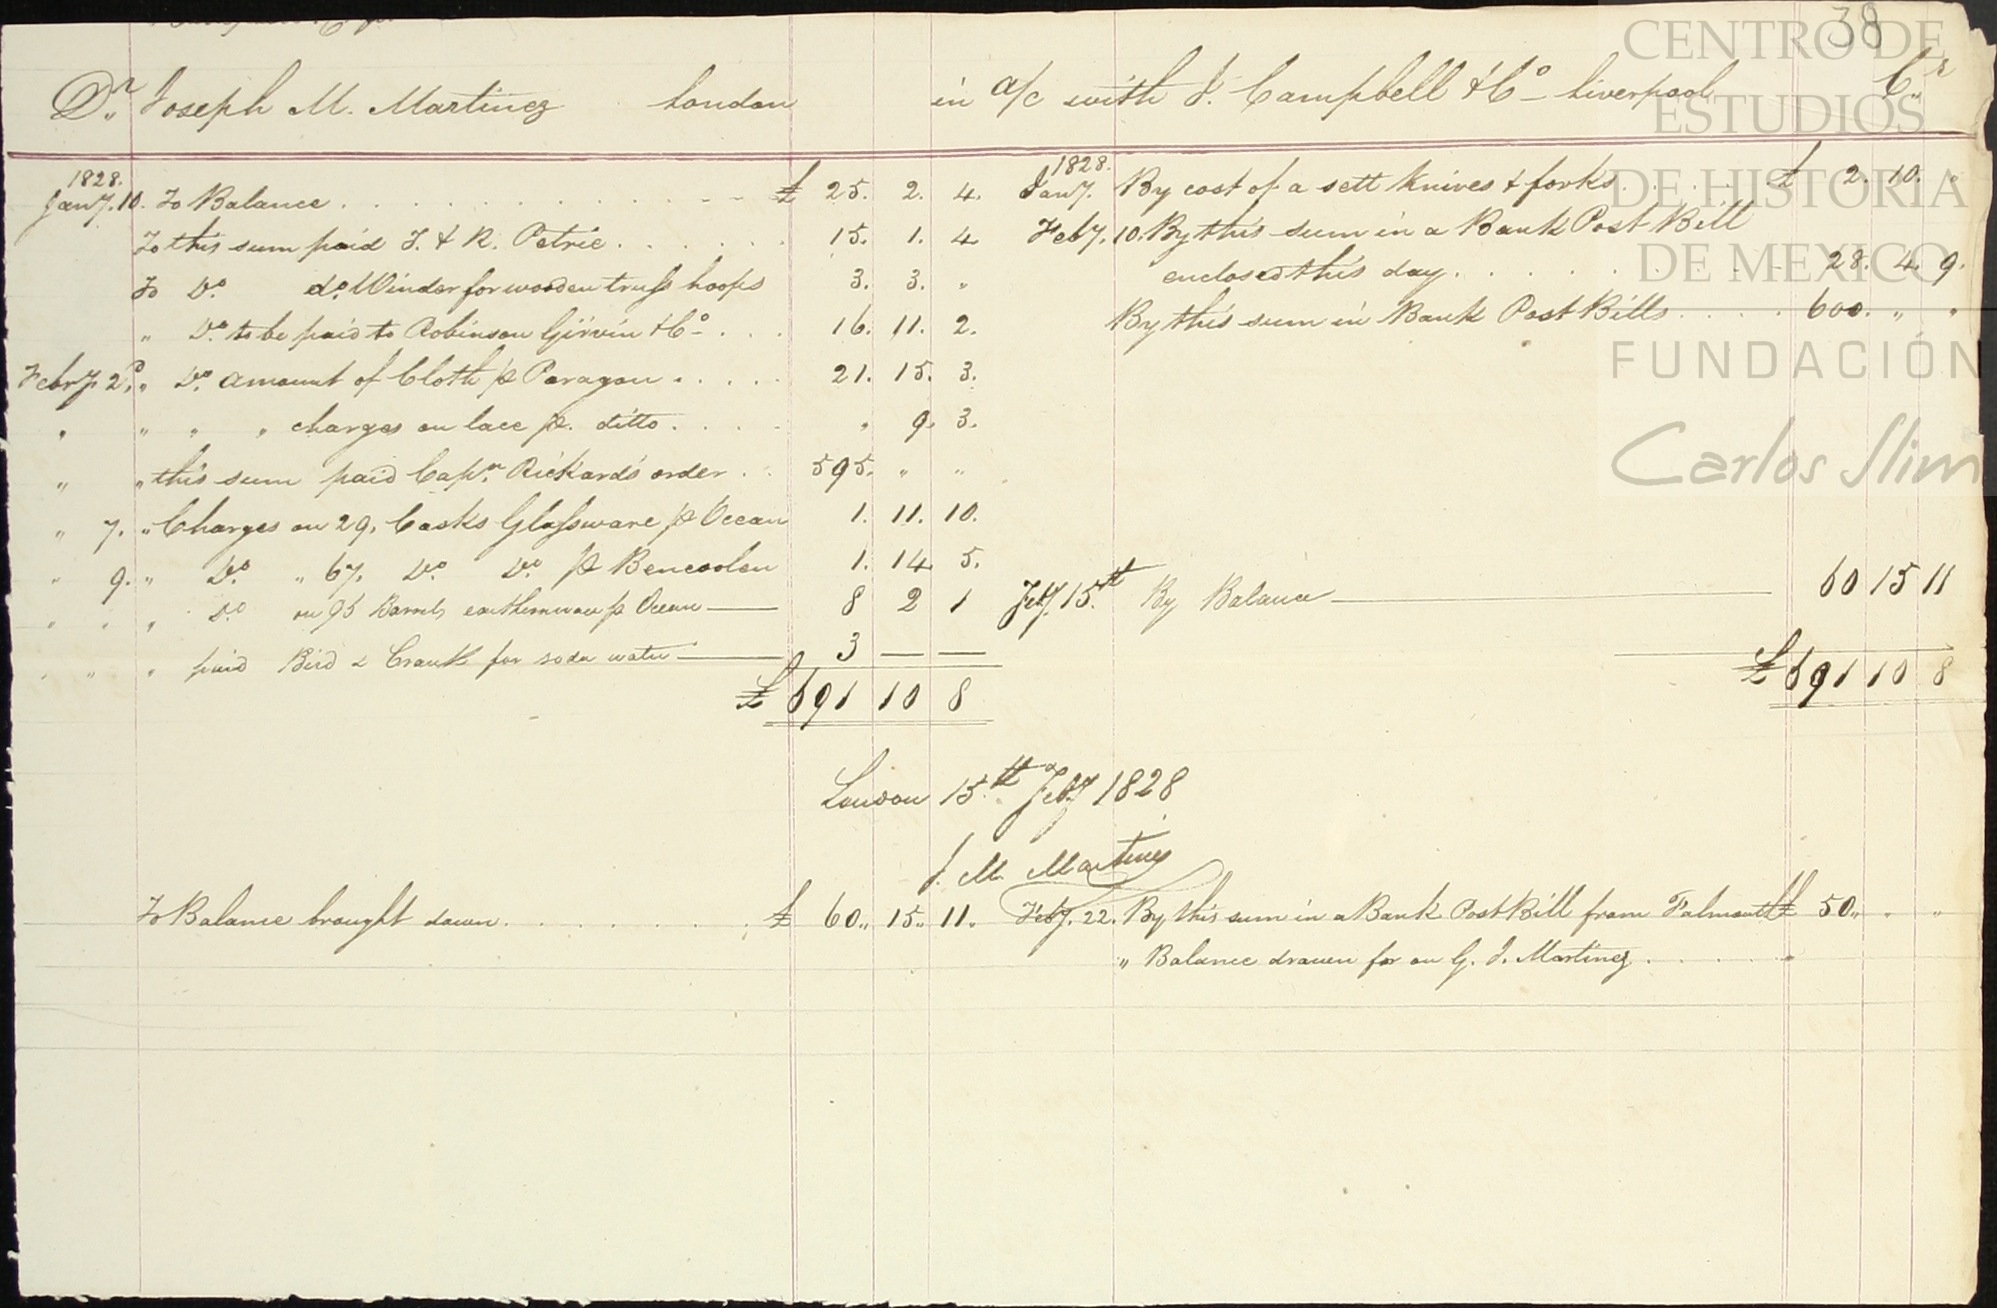 38
Dr Joseph M. Martinez London in a/c with J. Campbell & Co - Liverpool Cr
1828.
Jany. 10. To Balance £ 25. 2. 4.
To this sum paid J. & R. Petrie 15. 1. 4
To Do. do. Winder for wooden truss hoops 3. 3. "
" Do. to be paid to Robinson Girvin & Co - 16. 11. 2.
Febry 2d. " Do. amount of Cloth p Paragon 21. 15. 3.
" " " " charges on lace p. ditto " 9. 3.
" " this sum paid Capn. Rickards order 595. " "
" 7. " Charges on 29. Casks Glassware p Ocean 1. 11. 10.
" 9. " Do " 67. Do. Do. p Bencoolen 1. 14. 5.
" " " Do on 95 Barrels earthenware p Ocean 8 2 1
" " " paid Bird & Crank for soda water 3 — —
£ 691 10 8
1828.
Jany. By cost of a sett Knives & forks £ 2. 10. "
Feby. 10. By this sum in a Bank Post Bill
enclosed this day 28. 4. 9.
By this sum in Bank Post Bills 600. " "
Feby 15th By Balance 60 15 11
£ 691 10 8
London 15th Feby 1828
J. M. Martinez
To Balance brought down £ 60. " 15. " 11.
Feby. 22. By this sum in a Bank Post Bill from Falmouth £ 50. " " "
" Balance drawn for on G. J. Martinez "
CENTRO DE
ESTUDIOS
DE HISTORIA
DE MEXICO
FUNDACIÓN
Carlos Slim